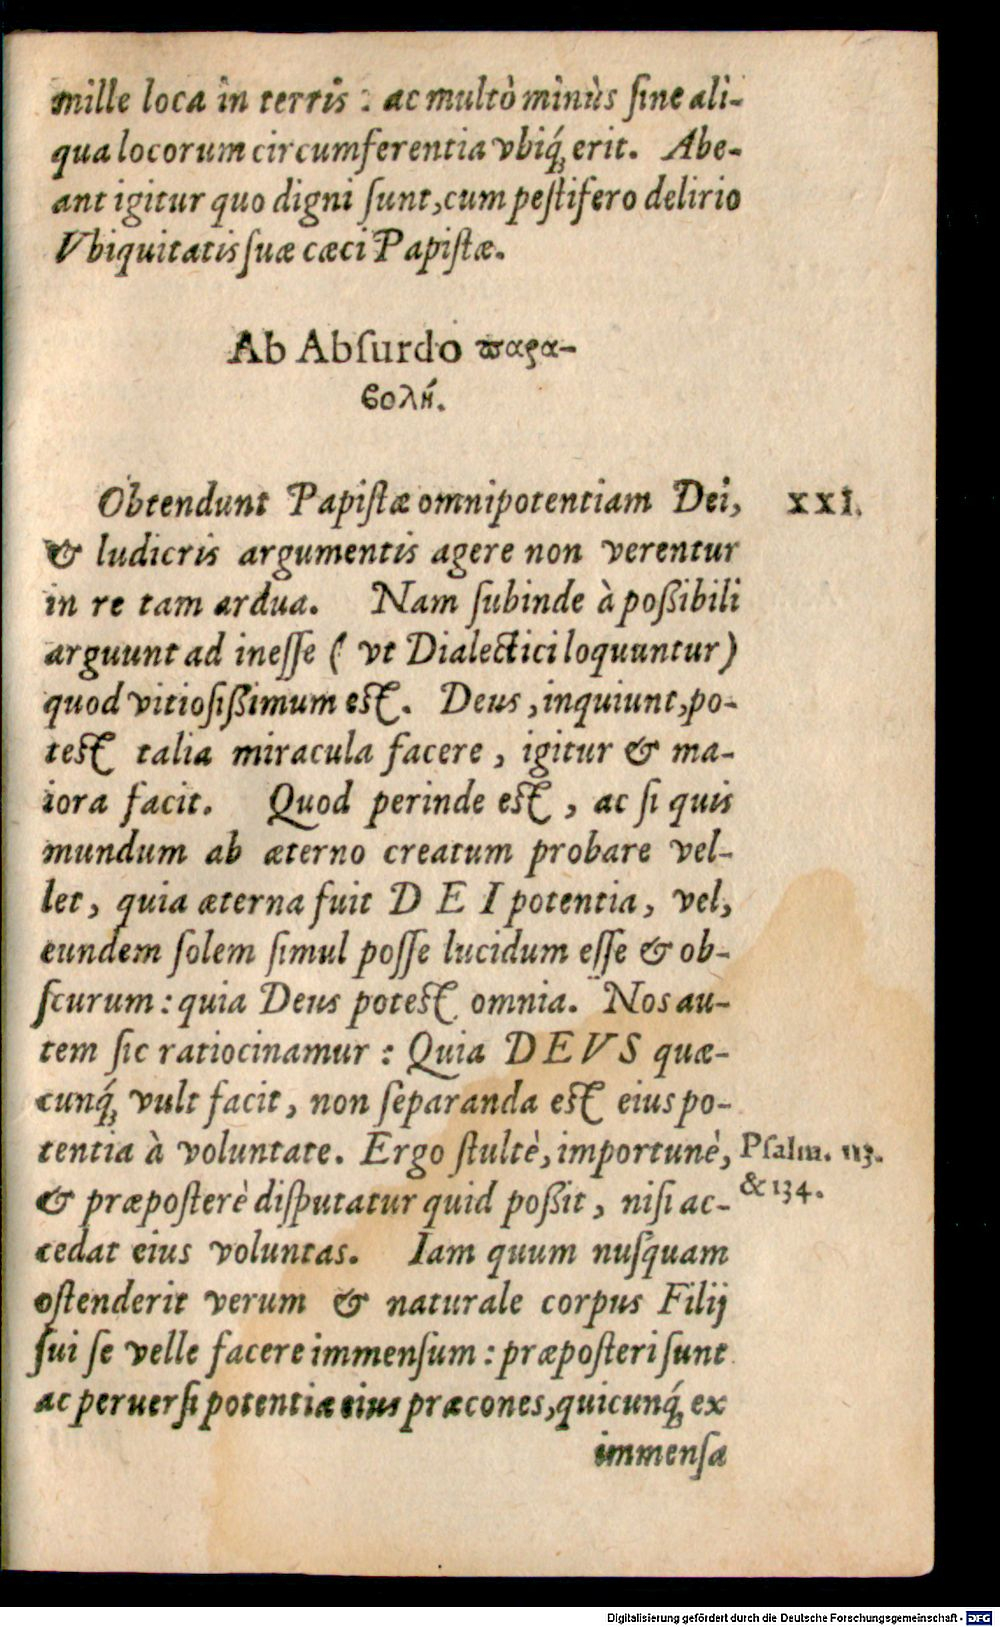 mille loca in terris : ac multò minùs ſine ali-
qua locorum circumferentia vbiq́ꝫ erit. Abe-
ant igitur quo digni ſunt, cum peſtifero delirio
Vbiquitatis ſuæ cæci Papiſtæ.
Ab Abſurdo ϖαρα-
ϐολή.
Obtendunt Papiſtæ omnipotentiam Dei,
XXI.
& ludicris argumentis agere non verentur
in re tam ardua. Nam ſubinde à poßibili
arguunt ad ineſſe ( vt Dialectici loquuntur)
quod vitioſißimum est. Deus, inquiunt, po-
test talia miracula facere, igitur & ma-
iora facit. Quod perinde est, ac ſi quis
mundum ab æterno creatum probare vel-
let, quia æterna fuit DEI potentia, vel,
eundem ſolem ſimul poſſe lucidum eſſe & ob-
ſcurum : quia Deus potest omnia. Nos au-
tem ſic ratiocinamur : Quia DEVS quæ-
cunq́ꝫ vult facit, non ſeparanda est eius po-
tentia à voluntate. Ergo ſtultè, importunè,
Pſalm. 113.
& 134.
& præpoſterè diſputatur quid poßit, niſi ac-
cedat eius voluntas. Iam quum nuſquam
oſtenderit verum & naturale corpus Filij
ſui ſe velle facere immenſum : præpoſteri ſunt
ac peruerſi potentiæ eius præcones, quicunq́ꝫ ex
immenſa
Digitalisierung gefördert durch die Deutsche Forschungsgemeinschaft - DFG